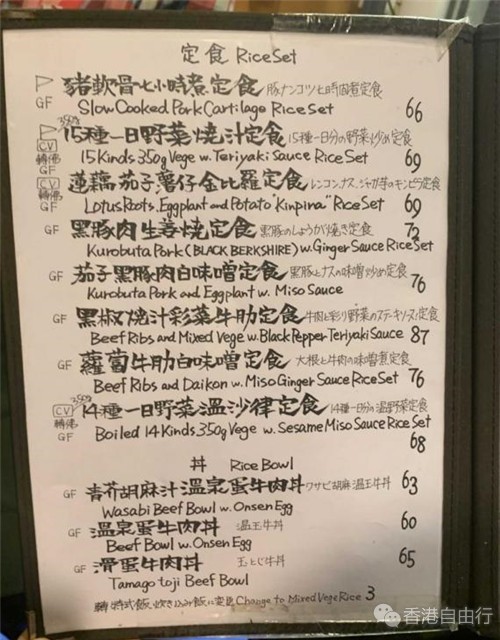 定食 Rice Set
豬軟骨七小時煮定食 豚ナンコツ七時間煮定食
GF Slow Cooked Pork Cartilage Rice Set 66
350g
15種一日野菜燒汁定食 15種一日分の野菜炒め定食
CV
GF 15 Kinds 350g Vege w. Teriyaki Sauce Rice Set 69
CV 蓮藕茄子薯仔金比羅定食 レンコン,ナス,ジャガ芋のキンピラ定食
GF Lotus Roots, Eggplant and Potato "Kinpina" Rice Set 69
GF 黑豚肉生姜燒定食 黒豚のしょうが焼き定食 72
Kurobuta Pork (BLACK BERKSHIRE) w. Ginger Sauce Rice Set
GF 茄子黑豚肉白味噌定食 黒豚とナスの味噌炒め定食
Kurobuta Pork and Eggplant w. Miso Sauce 76
GF 黑椒燒汁彩菜牛肋定食 牛肉と彩り野菜のステーキソース定食
Beef Ribs and Mixed Vege w. Black Pepper Teriyaki Sauce 87
GF 蘿蔔牛肋白味噌定食 大根と牛肉の味噌煮定食
Beef Ribs and Daikon w. Miso Ginger Sauce Rice Set 76
350g
CV 14種一日野菜溫沙律定食 14種一日分の温野菜定食
GF Boiled 14 Kinds 350g Vege w. Sesame Miso Sauce Rice Set
68
丼 Rice Bowl
GF 青芥胡麻汁溫泉蛋牛肉丼 ワサビ胡麻温玉牛丼 63
Wasabi Beef Bowl w. Onsen Egg
GF 溫泉蛋牛肉丼 温玉牛丼 60
Beef Bowl w. Onsen Egg
GF 滑蛋牛肉丼 玉とじ牛丼 65
Tamago toji Beef Bowl
轉特式飯,炊き込み飯に変更 Change to Mixed Vege Rice 3
香港自由行